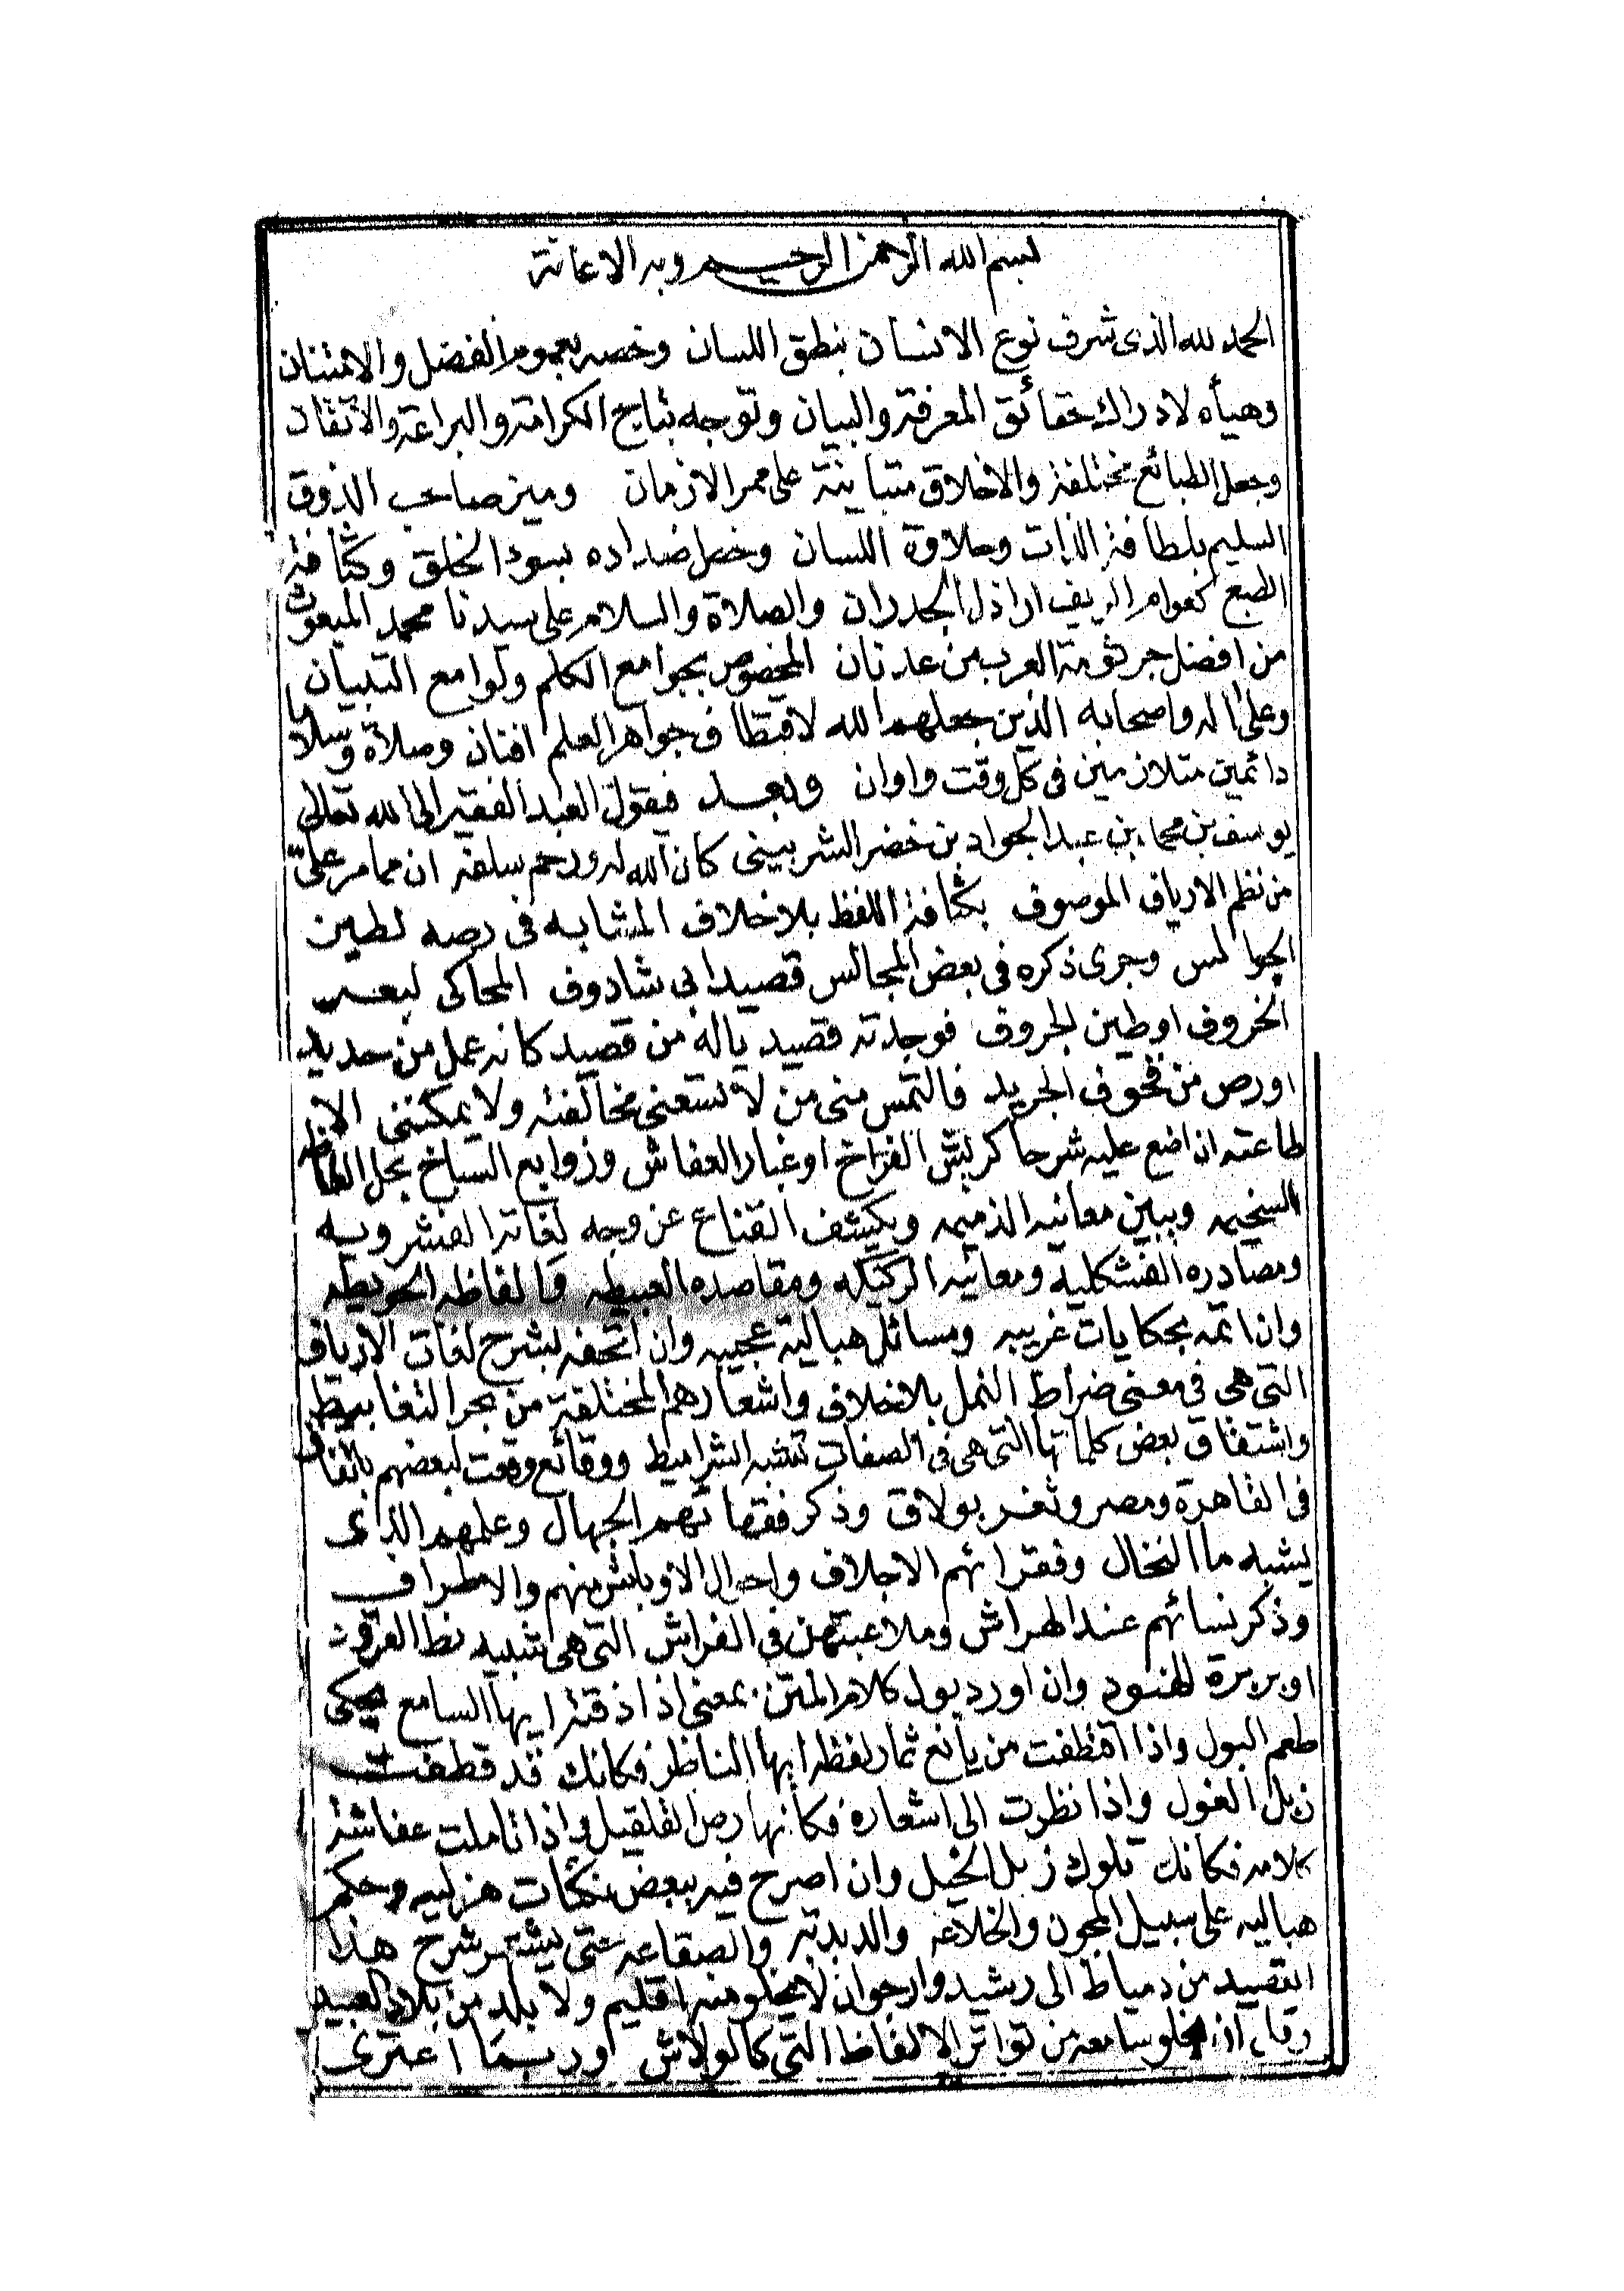 بسم الله الرحمن الرحيم وبه الاعانة
الحمد لله الذى شرف نوع الانسان بنطق اللسان وخصه بعموم الفضل والامتنان
وهيأه لادراك حقائق المعرفة والبيان وتوجه بتاج الكرامة والبراعة والاتقان
وجعل الطبائع مختلفة والاخلاق متباينة على ممر الازمان وميز صاحب الذوق
السليم بلطافة الذات وحلاوة اللسان وخص اضداده بسوء الخلق وكثافة
الطبع كعوام الريف اراذل الجدران والصلاة والسلام على سيدنا محمد المبعوث
من افضل جرثومة العرب من عدنان المخصوص بجوامع الكلم ولوامع التبيان
وعلى اله واصحابه الذين جعلهم الله لاقتطاف جواهر العلم افنان وصلاة وسلاما
دائمين متلازمين فى كل وقت واوان وبعد فيقول العبد الفقير الى الله تعالى
يوسف بن محمد بن عبد الجواد بن خضر الشربينى كان الله له ورحم سلفه ان مما مر على
من نظم الارياف الموصوف بكثافة اللفظ بلا خلاف المشابه فى رصه لطين
الجوالس وجرى ذكره فى بعض المجالس قصيد ابى شادوف المحاكى لبعر
الخروف او طين الجروف فوجدته قصيد ياله من قصيد كانه عمل من حديد
اورص من قحوف الجريد فالتمس منى من لا تسعنى مخالفته ولا يمكننى الا
طاعته ان اضع عليه شرحا كريش الفراخ او غبار العفاش وزوابع السباخ بحل الفاظه
السخيمه وببين معانيه الذميمه ويكشف القناع عن وجه لغاته الفشرويه
ومصادره الفشكليه ومعانيه الركيكه ومقاصده العبيطه والفاظه الحويطه
وان اتمه بحكايات غريبه ومسائل هبالية عجيبه وان اتحفه بشرح لغات الارياف
التى هى فى معنى ضراط النمل بلا خلاف واشعارهم المختلقة من بحر التغابيط
واشتقاق بعض كلماتها التى هى فى الصفات تشبه الشراميط ووقائع وقعت لبعضهم باتفاق
فى القاهرة ومصر وثغر بولاق وذكر فقهائهم الجهال وعلمهم الذى
يشبه ما النخال وفقرائهم الاجلاف واحوال الاوباش منهم والاطراف
وذكر نسائهم عند الهراش وملاعبتهن فى الفراش التى هى شبيه نط القرود
او بربرة الهنود وان اورد بول كلام المتن بمعنى اذا ذقته ايها السامع يحكى
طعم البول واذا اقتطفت من يانع ثمار لفظه ايها الناظر فكانك قد قطفت
زبل الغول واذا نظرت الى اشعاره فكانها رص القلقيل واذا تاملت عفاشة
كلامه فكانك تلوك زبل الخيل وان اصرح فيه ببعض نكات هزليه وحكم
هباليه على سبيل المجون والخلاعة والدبدبة والصقاعه حتى يشتهر شرح هذا
القصيد من دمياط الى رشيد وارجوان لا يخلو منه اقليم ولا بلد من بلاد العبيد
وقل ان يخلو سامعه من تواتر الالفاظ التى كالولاش او ربما اعترى